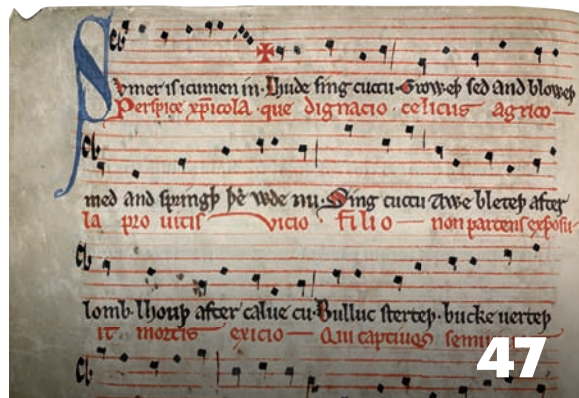 Svmer is icumen in· Lhude sing cuccu· Groweþ sed and bloweþ
Perspice xp̄icola· que dignacio· celicus agrico—
med and springþ þe wde nu· Sing cuccu Awe bleteþ after
la pro uitis vicio filio — non parcens exposu-
lomb· lhouþ after calue cu· Bulluc sterteþ· bucke uerteþ
it mortis exicio — Qui captiuos
47